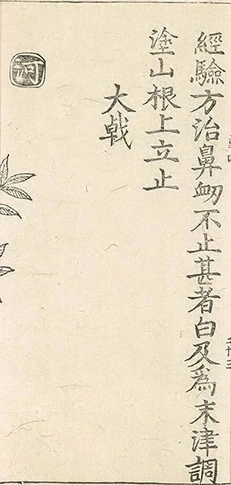 經驗方治鼻衄不止甚者白及爲末津調
塗山根上立止
大戟